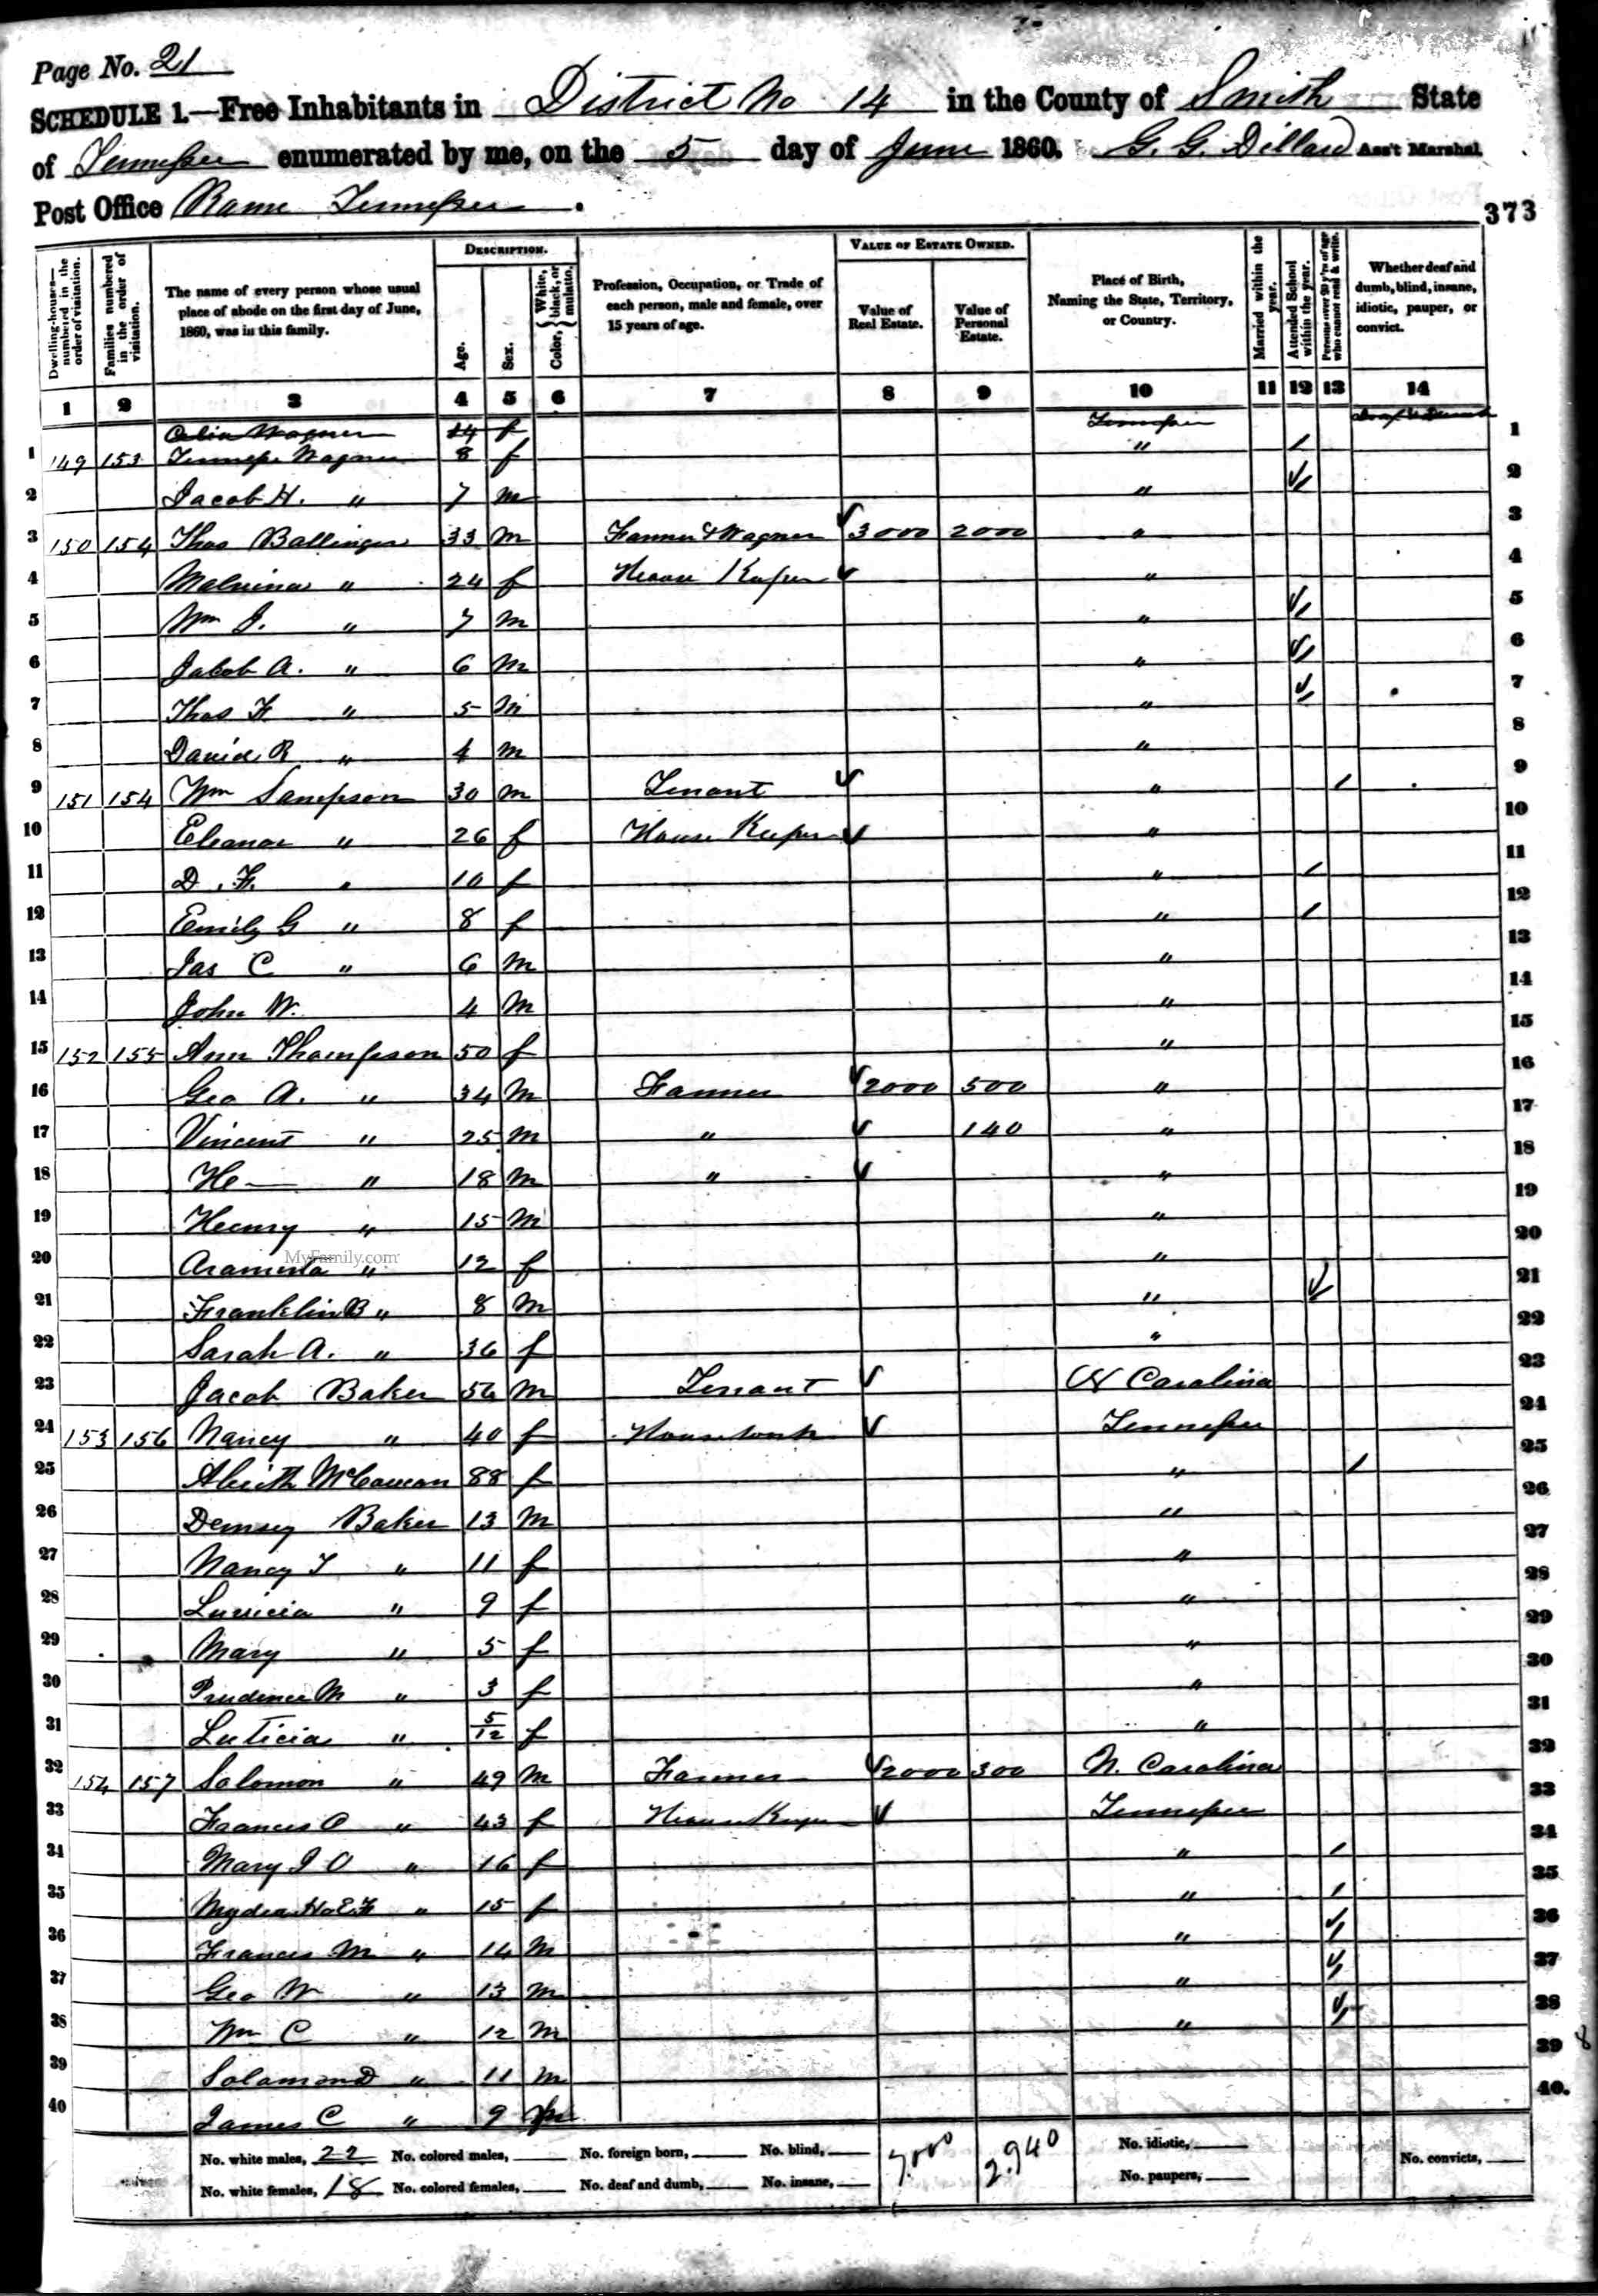 Page No. 21
SCHEDULE 1.—Free Inhabitants in District No 14 in the County of Smith State
of Tennessee enumerated by me, on the 5 day of June 1860. G. G. Dillard Ass't Marshal.
Post Office Rome Tennessee.
373
Dwelling-houses—numbered in the order of visitation.
Families numbered in the order of visitation.
The name of every person whose usual place of abode on the first day of June, 1860, was in this family.
DESCRIPTION.
Age.
Sex.
Color, { White, black, or mulatto.
Profession, Occupation, or Trade of each person, male and female, over 15 years of age.
VALUE OF ESTATE OWNED.
Value of Real Estate.
Value of Personal Estate.
Place of Birth, Naming the State, Territory, or Country.
Married within the year.
Attended School within the year.
Persons over 20 y'rs of age who cannot read & write.
Whether deaf and dumb, blind, insane, idiotic, pauper, or convict.
1 2 3 4 5 6 7 8 9 10 11 12 13 14
Wagner 14 f Tennessee Deaf & Dumb 1
1 149 153 Wagner 8 f " / 2
2 Jacob H. " 7 m " / 3
3 150 154 Thos Ballinger 33 m Farmer & Wagner 3000 2000 " 4
4 Malvina " 24 f House Keeper " 5
5 Wm J. " 7 m " / 6
6 Jacob A. " 6 m " / 7
7 Thos F " 5 m " / 8
8 David R " 4 m " 9
9 151 154 Wm Sampson 30 m Tenant " / 10
10 Eleanor " 26 f House Keeper " 11
11 D. F. " 10 f " / 12
12 Emily G " 8 f " / 13
13 Jas C " 6 m " 14
14 John W. 4 m " 15
15 152 155 Ann Thompson 50 f " 16
16 Geo A. " 34 m Farmer 2000 500 " 17
17 Vincent " 25 m " 140 " 18
18 He— " 18 m " " 19
19 Henry " 15 m " 20
20 Araminta " 12 f " 21
MyFamily.com
21 Franklin B " 8 m " / 22
22 Sarah A. " 36 f " 23
23 Jacob Baker 56 m Tenant N Carolina 24
24 153 156 Nancy " 40 f Housework Tennessee 25
25 88 f " / 26
26 Demsey Baker 13 m " 27
27 Nancy T " 11 f " 28
28 " 9 f " 29
29 Mary " 5 f " 30
30 Prudence M " 3 f " 31
31 Luticia " 5/12 f " 32
32 154 157 Solomon " 49 m Farmer 2000 300 N. Carolina 33
33 Frances " 43 f House Keeper Tennessee 34
34 Mary J " 16 f " / 35
35 " 15 f " / 36
36 Francis M " 14 m " / 37
37 Geo W " 13 m " / 38
38 Wm C " 12 m " / 39
39 Solamon D " 11 m 40.
40 James C " 9 m
8
No. white males, 22 No. colored males, No. foreign born, No. blind, 7.000 2.940 No. idiotic, No. convicts,
No. white females, 18 No. colored females, No. deaf and dumb, No. insane, No. paupers,